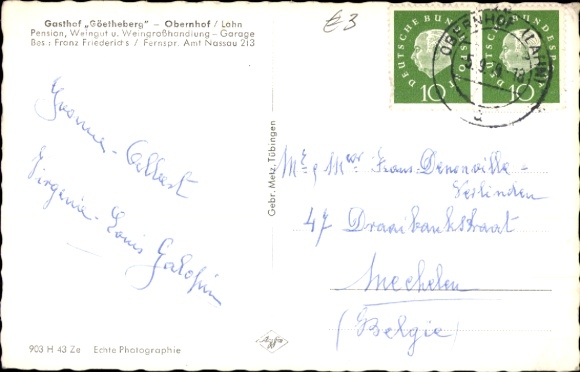 Gasthof „Göetheberg" – Obernhof / Lahn
Pension, Weingut u. Weingroßhandlung – Garage
Bes.: Franz Friederichs / Fernspr. Amt Nassau 213
€3
DEUTSCHE BUNDESPOST
10
DEUTSCHE BUNDESPOST
10
OBERNHOF (LAHN)
Yvonne - Albert
Virginie - Louis Galopin
Gebr. Metz, Tübingen
Mr & Mevr Frans Denonville -
Verlinden
47 Draaibankstraat
Mechelen
(Belgie)
903 H 43 Ze Echte Photographie
Agfa